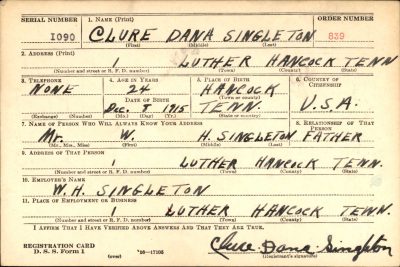 SERIAL NUMBER 1. NAME (Print) ORDER NUMBER
1090 CLURE DANA SINGLETON 839
(First) (Middle) (Last)
2. ADDRESS (Print)
1 LUTHER HANCOCK TENN
(Number and street or R. F. D. number) (Town) (County) (State)
3. TELEPHONE 4. AGE IN YEARS 5. PLACE OF BIRTH 6. COUNTRY OF CITIZENSHIP
NONE 24 HANCOCK
DATE OF BIRTH (Town or county)
Dec. 1915 TENN. U.S.A.
(Exchange) (Number) (Mo.) (Day) (Yr.) (State or country)
7. NAME OF PERSON WHO WILL ALWAYS KNOW YOUR ADDRESS 8. RELATIONSHIP OF THAT PERSON
Mr. W. H. SINGLETON FATHER
(Mr., Mrs., Miss) (First) (Middle) (Last)
9. ADDRESS OF THAT PERSON
1 LUTHER HANCOCK TENN.
(Number and street or R. F. D. number) (Town) (County) (State)
10. EMPLOYER'S NAME
W. H. SINGLETON
11. PLACE OF EMPLOYMENT OR BUSINESS
1 LUTHER HANCOCK TENN.
(Number and street or R. F. D. number) (Town) (County) (State)
I AFFIRM THAT I HAVE VERIFIED ABOVE ANSWERS AND THAT THEY ARE TRUE.
REGISTRATION CARD
D. S. S. Form 1 (over) 16—17105 Clure Dana Singleton
(Registrant's signature)